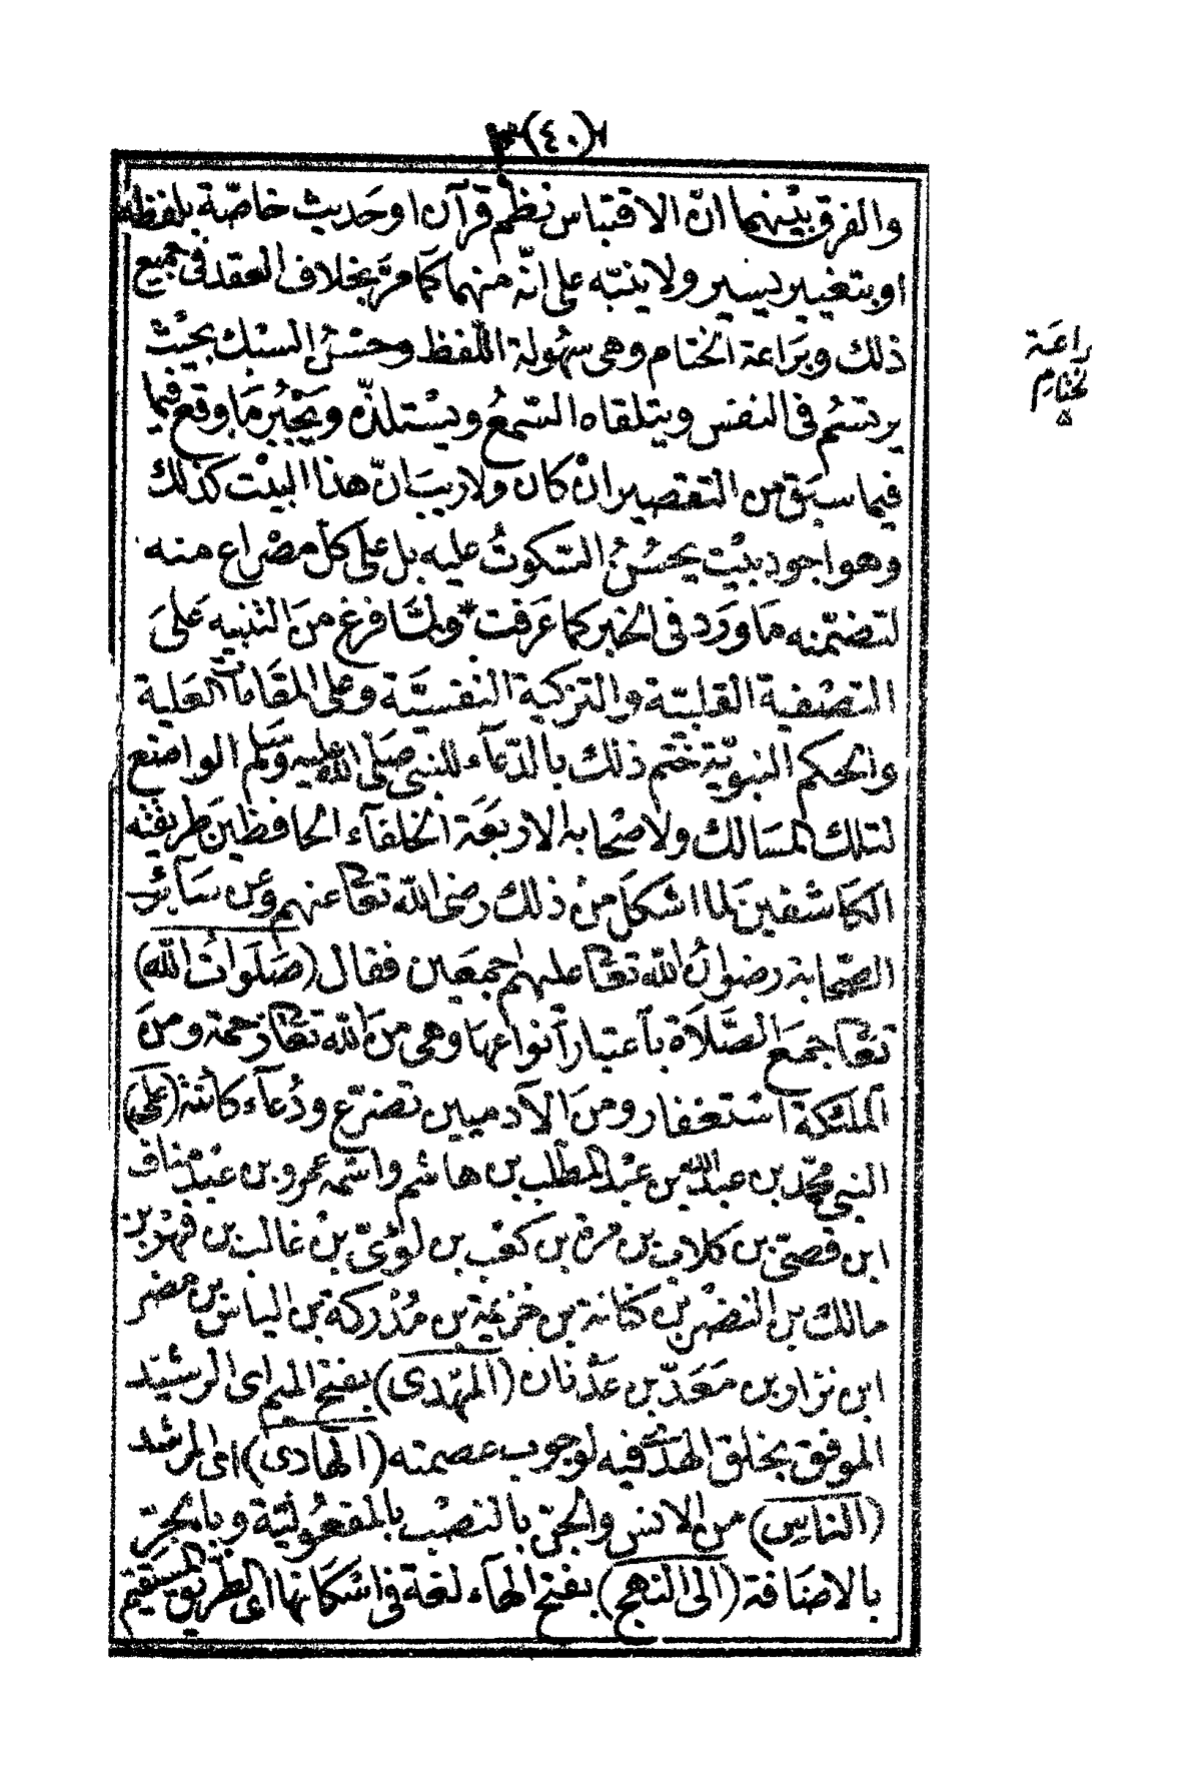 (٤٠)
والفرق بَيْنهما انّ الاقتباس نظم قرآن اوحَديث خاصّة بلفظه
اوبتغيير يسير ولا ينبّه على انّه منهما كمَا مرّ بخلاف العقد فى جميع
ذلك وبَراعة الختام وهى سهُولة اللّفظ وحسْنُ السبْك بحيْث
يرتسُم فى النفس ويتلقاه السّمعُ ويسْتلذّه ويَجْبُر مَا وقع فيما
فيما سبَق من التقصير انْ كان ولاريبَ انّ هذا البيْت كذلك
وهواجود بيْت يحسُنُ السّكوتُ عليه بل على كلّ مصْراع منه
لتضمّنه مَا ورَد فى الخبر كما عَرفت * ولمّا فرغ منَ التنبيه عَلىَ
التصْفية القلبيّة والتزكية النفسيَّة وعلى المقَامات العَلية
والحكم النبويّة ختم ذلك بالدّعآء للنبى صَلى الله عليه وسَلم الواضع
لتلك المسَالك ولاصْحابه الاربَعَة الخلفآء الحافظين طريقته
الكاشفينَ لما اشكلَ منْ ذلك رضى الله تعَا عنهم وعن سَآئر
الصّحابة رضوانُ الله تعَا عليهم اجمعَين فقال (صَلَواتُ الله)
تعَا جمَعَ الصَّلَاة باعتبار أنواعهَا وهى منَ الله تعَا رحمة ومنَ
الملئكة اسْتغفار ومنَ الآدميين تضرّع ودُعآء كائنة (عَلى)
النبى محمّد بن عبدالله بن عبْد المطّلب بن هاشم واسْمه عمرو بن عبْد مناف
ابن قصىّ بن كلاب بن مرة بن كعْب بن لؤىّ بنْ غالب بن فهْر بن
مالك بن النضْر بن كنانة بن خزيمة بن مُدْركة بن الياس بن مضر
ابن نزار بن مَعَدّ بن عدْنان (المهْدى) بفتح الميم اى الرشيد
الموفق بخلق الهدَى فيه لوجوب عصمته (الهَادى) اى المرشد
(الناس) من الانس والجن بالنصْب بالمفعُوليّة وبالجرّ
بالاضَافة (الى النهج) بفتح الهآء لغة فى اسْكانها اى الطّريق المستقيم
راعَة
لختام